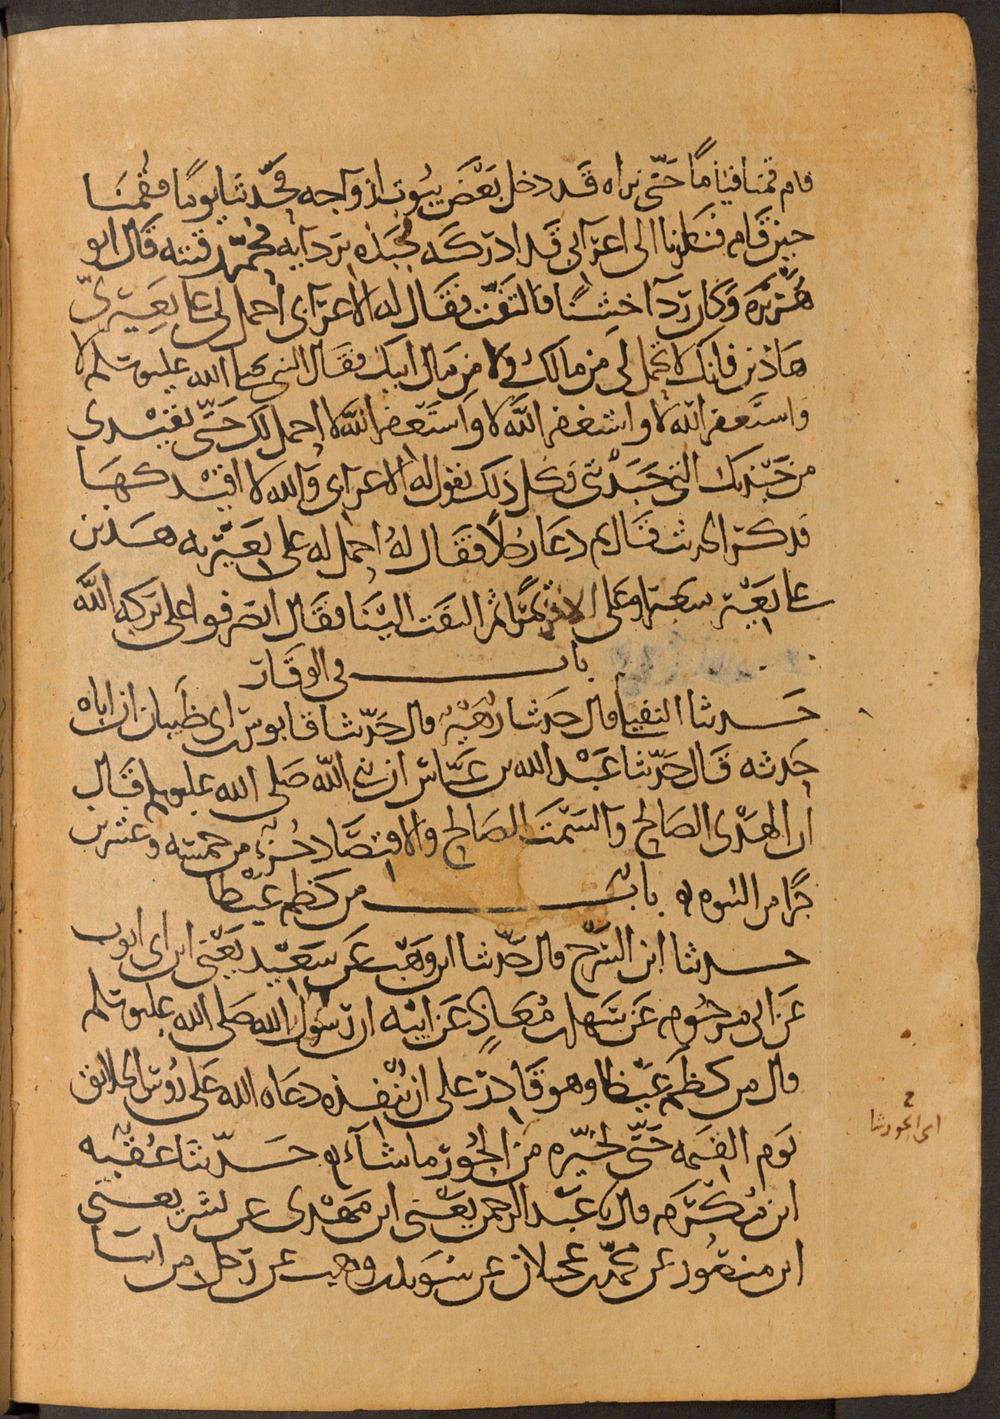 قام قمنا قياما حتى نراه قد دخل بعض بيوت ازواجه فحدثنا يوما فقمنا
حين قام فنظرنا الى اعرابي قد ادركه فجبذه بردآيه فحمر رقبته قال ابو
هريره وكان ردآ خشنا فالتفت فقال له الاعرابي احمل لي على بعيري
هاذين فانك لا تحمل لي من مالك ولا من مال ابيك فقال النبي صلى الله عليه وسلم لا
واستغفر الله لا واستغفر الله لا واستغفر الله لا احمل لك حتى تقيدني
من جبذتك التي جبذتني وكل ذلك يقول له الاعرابي والله لا اقيدكها
فذكر الحديث قال ثم دعا رجلا فقال له احمل له على بعيريه هذين
على بعير شعيرا وعلى الاخر تمرا ثم التفت الينا فقال انصرفوا على بركه الله
باب في الوقار
حدثنا النفيلي قال حدثنا زهير قال حدثنا قابوس بن ابي ظبيان ان اباه
حدثه قال حدثنا عبد الله بن عباس ان نبي الله صلى الله عليه وسلم قال
ان الهدى الصالح والسمت الصالح والاقتصاد جزء من خمسه وعشرين
جزا من النبوه باب من كظم غيظا
حدثنا ابن السرح قال حدثنا ابن وهب عن سعيد يعني ابن ابي ايوب
عن ابي مرحوم عن سهل بن معاذ عن ابيه ان رسول الله صلى الله عليه وسلم
قال من كظم غيظا وهو قادر على ان ينفذه دعاه الله على رؤس الخلائق
يوم القيمه حتى يخيره من الحور ما شآء حدثنا عقبه
ابن مكرم قال نا عبد الرحمن يعني ابن مهدى عن بشر يعني
ابن منصور عن محمد بن عجلان عن سويد بن وهب عن رجل من ابنا